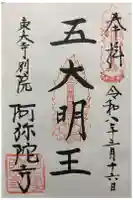 奉拝
令和八年三月十六日
五大明王
東大寺別院
阿弥陀寺